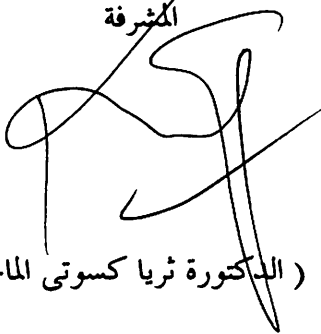 المشرفة
( الدكتورة ثريا كسوتى